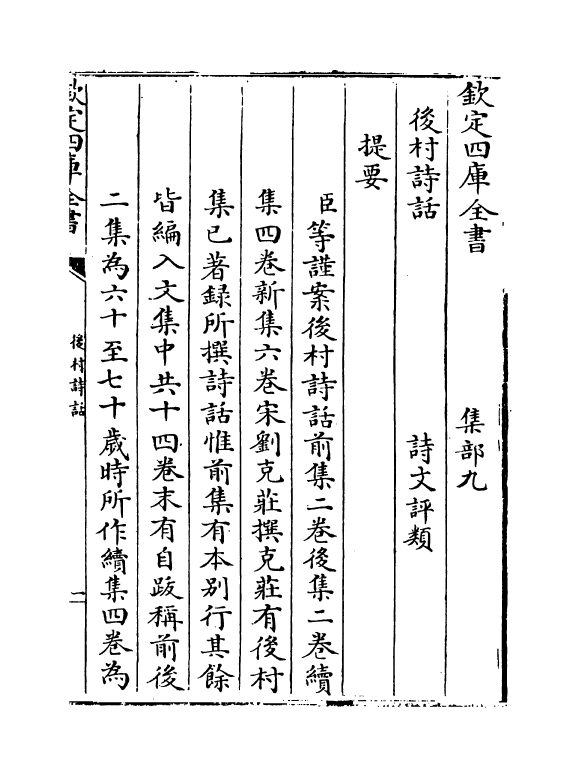 欽定四庫全書 集部九
後村詩話 詩文評類
提要
臣等謹案後村詩話前集二卷後集二卷續
集四卷新集六卷宋劉克莊撰克莊有後村
集已著録所撰詩話惟前集有本别行其餘
皆編入文集中共十四卷末有自跋稱前後
二集為六十至七十歳時所作續集四卷為
欽定四庫全書
後村詩話